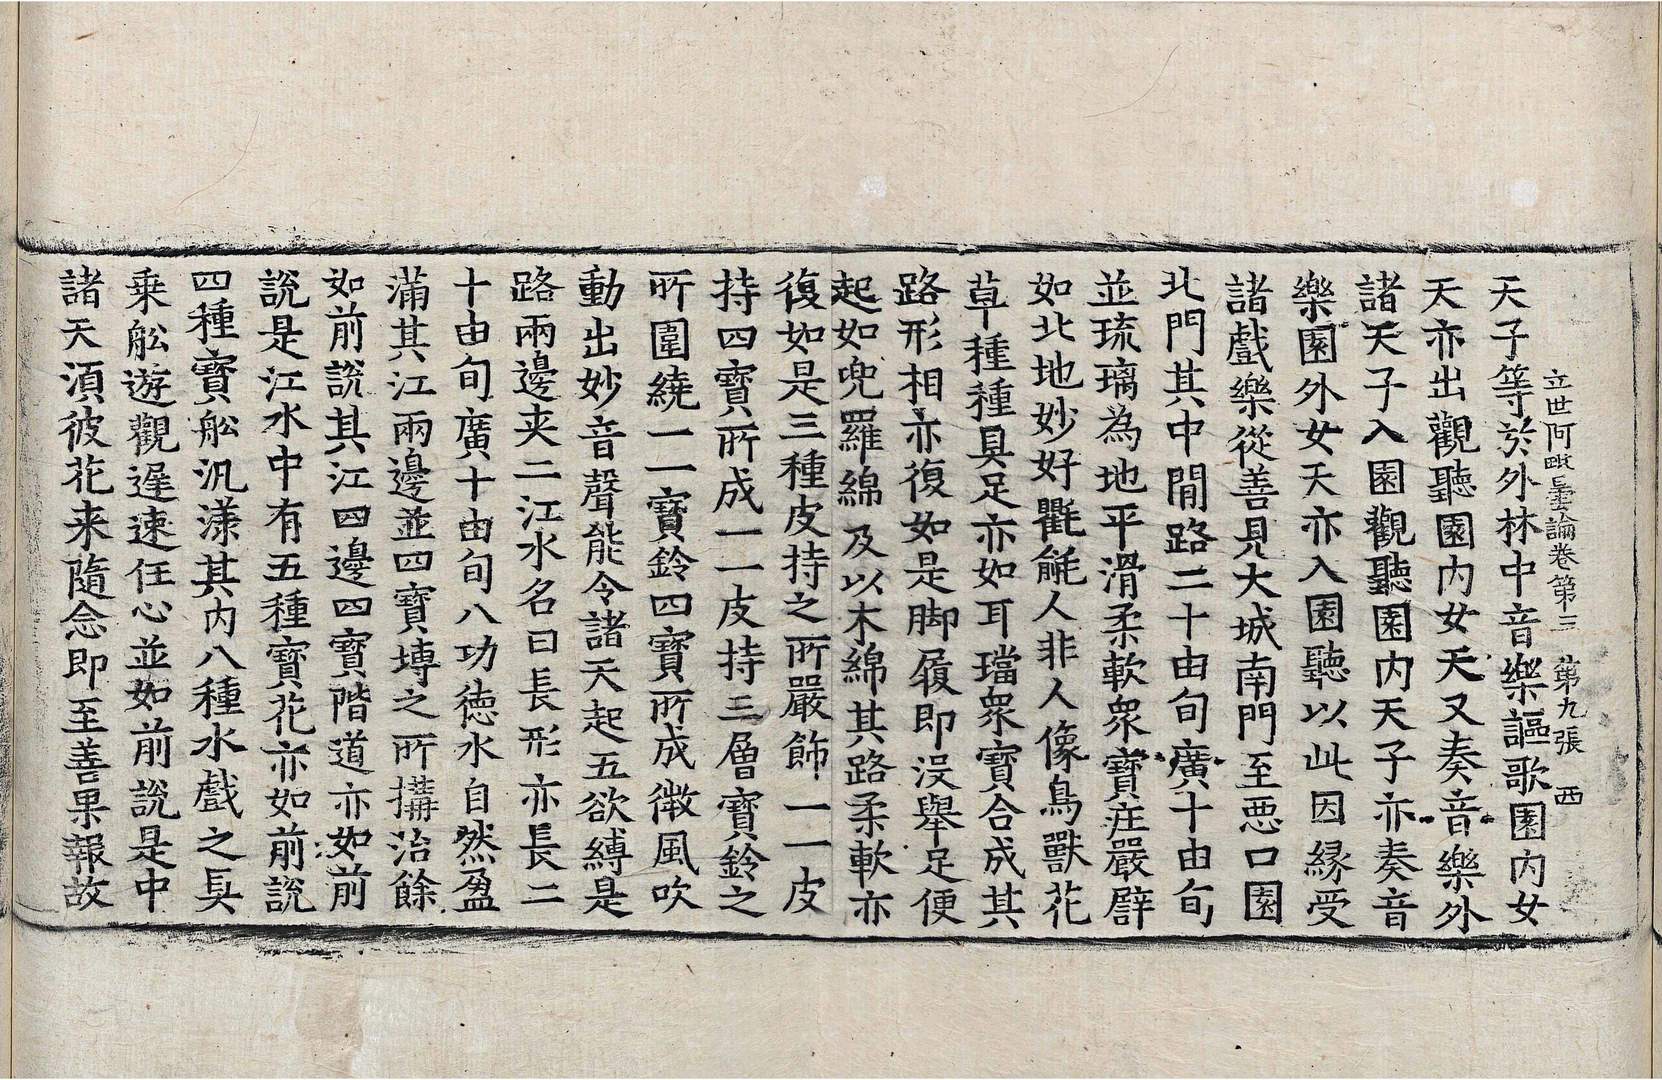 立世阿毗曇論卷第三　第九張　西
天子等於外林中音樂謳歌園內女
天亦出觀聽園內女天又奏音樂外
諸天子入園觀聽園內天子亦奏音
樂園外女天亦入園聽以此因縁受
諸戲樂從善見大城南門至惡口園
北門其中間路二十由旬廣十由旬
並琉璃為地平滑柔軟衆寶莊嚴譬
如北地妙好氍毹人非人像鳥獸花
草種種具足亦如耳璫衆寶合成其
路形相亦復如是脚履即没舉足便
起如兜羅綿及以木綿其路柔軟亦
復如是三種皮持之所嚴飾一一皮
持四寶所成一一皮持三層寶鈴之
所圍繞一一寶鈴四寶所成微風吹
動出妙音聲能令諸天起五欲縛是
路兩邊夾二江水名曰長形亦長二
十由旬廣十由旬八功德水自然盈
滿其江兩邊並四寶塼之所搆治餘
如前說其江四邊四寶階道亦如前
說是江水中有五種寶花亦如前說
四種寶舩汎漾其內八種水戲之具
乘舩遊觀遲速任心並如前說是中
諸天須彼花来隨念即至善果報故